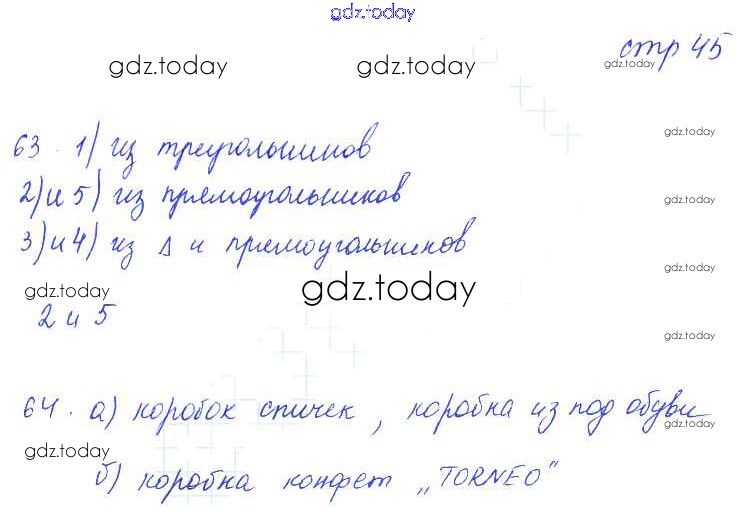 gdz.today
стр 45
gdz.today gdz.today gdz.today
gdz.today
63. 1) из треугольников
gdz.today
2) и 5) из прямоугольников
3) и 4) из Δ и прямоугольников
gdz.today
gdz.today gdz.today
2 и 5
gdz.today
64. а) коробок спичек, коробка из под обуви
gdz.today
gdz.today
б) коробка конфет „TORNEO"